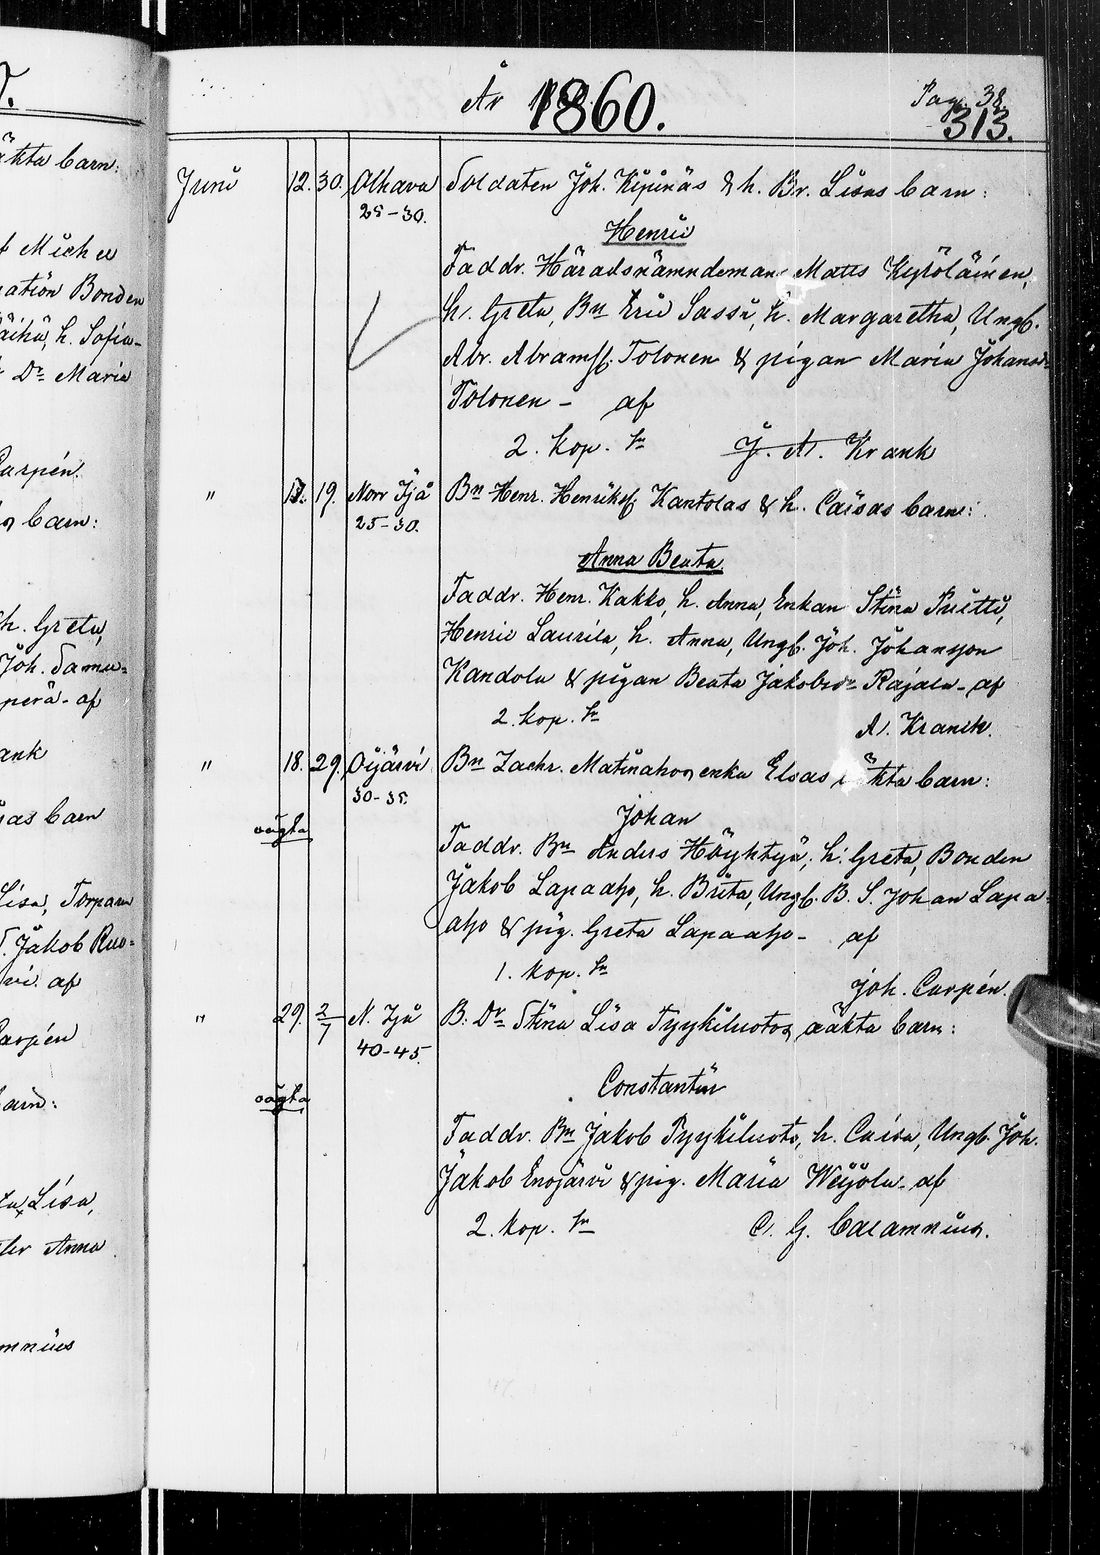 År 1860. Pag. 38
313.
Juni 12. 30. Olhava Soldaten Joh. Kipinäs & h. Br. Lisas barn:
25-30.
Henric
Faddr. Häradsnämndeman Matts Kyröläinen,
h. Greta, Bn Eric Sassi, h. Margaretha, Ungk.
Abr. Abramsf. Tolonen & pigan Maria Johansdr
Tolonen - af
2. kop. Sr J. A. Krank
" 17. 19. Norr Ijå Bn Henr. Henriksf. Kantolas & h. Caisas barn:
25-30.
Anna Beata
Faddr. Henr. Kakko, h. Anna, Enkan Stina Puitti,
Henric Laurila, h. Anna, Ungk. Joh. Johansson
Kandola & pigan Beata Jakobsdr Rajala - af
2. kop. Sr A. Krank.
" 18. 29. Oijärvi Bn Zachr. Matinahos enka Elsas oäkta barn:
30-35.
oägta Johan
Faddr. Bn Anders Höyhtyä, h. Greta, Bonden
Jakob Lapaaho, h. Brita, Ungk. B. S. Johan Lapa-
aho & pig. Greta Lapaaho - af
1. kop. Sr Joh. Carpén.
" 29. 2/7 N. Ijå B. Dr Stina Lisa Tyykiluotos oäkta barn:
40-45.
oägta Constantin
Faddr. Bn Jakob Tyykiluoto, h. Caisa, Ungk. Joh.
Jakob Enojärvi & pig. Maria Weijola - af
2. kop. Sr C. G. Calamnius.
7.
äkta barn:
Michel
Bonden
h. Sofia
Dr Maria
Carpén.
barn:
h. Greta,
Joh. Samu=
perä - af
ank
as barn
Lisa, Torparen
Jakob Ruo=
vi. af
Carpén
barn:
Lisa,
Anna
mnius